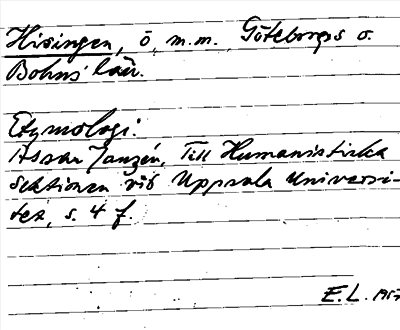 Hisingen, ö, m.m., Göteborgs o.
Bohus' län.
Etymologi:
Assar Janzén, Till Humanistiska
Sektionen vid Uppsala Universi-
tet, s. 4 f.
E.L. 1957